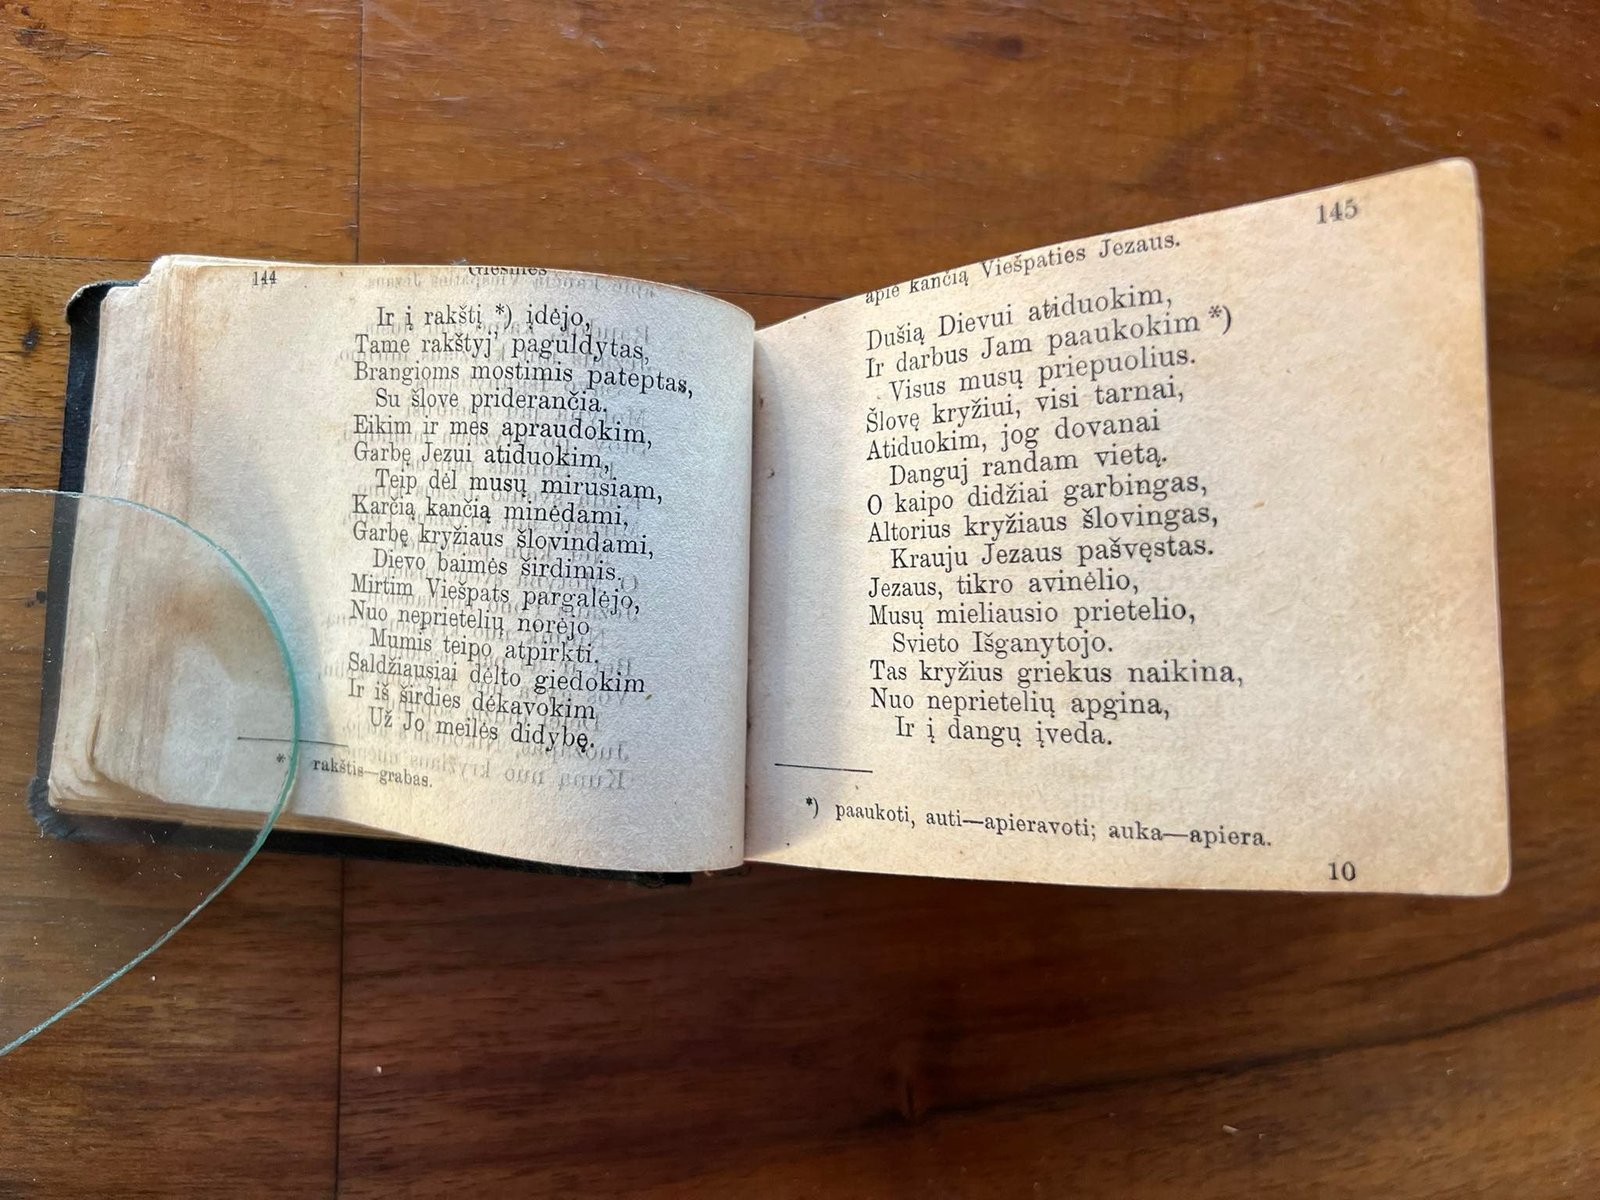 144
Giesmės
Ir į rakštį *) įdėjo,
Tame rakštyj' paguldytas,
Brangioms mostimis pateptas,
Su šlove priderančia.
Eikim ir mes apraudokim,
Garbę Jezui atiduokim,
Teip dėl musų mirusiam,
Karčią kančią minėdami,
Garbę kryžiaus šlovindami,
Dievo baimės širdimis.
Mirtim Viešpats pargalėjo,
Nuo neprietelių norėjo
Mumis teipo atpirkti.
Saldžiausiai dėlto giedokim
Ir iš širdies dėkavokim
Už Jo meilės didybę.
* rakštis—grabas.
145
apie kančią Viešpaties Jezaus.
Dušią Dievui atiduokim,
Ir darbus Jam paaukokim *)
Visus musų priepuolius.
Šlovę kryžiui, visi tarnai,
Atiduokim, jog dovanai
Danguj randam vietą.
O kaipo didžiai garbingas,
Altorius kryžiaus šlovingas,
Krauju Jezaus pašvęstas.
Jezaus, tikro avinėlio,
Musų mieliausio prietelio,
Svieto Išganytojo.
Tas kryžius griekus naikina,
Nuo neprietelių apgina,
Ir į dangų įveda.
*) paaukoti, auti—apieravoti; auka—apiera.
10